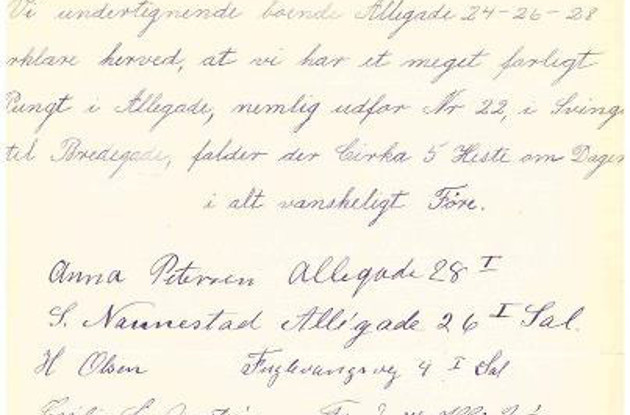 Vi undertignende boende Allegade 24-26-28
rklare herved, at vi har et meget farligt
Pungt i Allegade, nemlig udfor Nr 22, i Sving
til Bredegade, falder der Cirka 5 Heste om Dagen
i alt vanskeligt Føre.
Anna Petersen Allegade 28 I
S. Nannestad Allégade 26 I Sal.
H Olsen Fuglevangsvej 4 I Sal